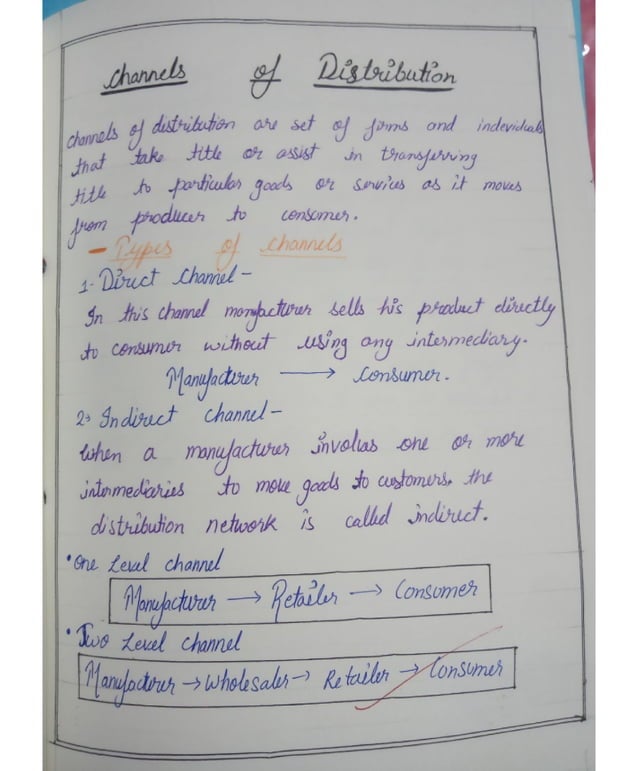 Channels of Distribution
Channels of distribution are set of firms and indeviduals
that take title or assist in transferring
title to particular goods or services as it moves
from producer to consumer.
- Types of channels
1- Direct Channel -
In this channel manfacturer sells his product directly
to consumer without using any intermediary.
Manufacturer → Consumer.
2. Indirect channel -
When a manufacturer involias one or more
intermediaries to move goods to customers. the
distribution network is called indirect.
• One Level channel
Manufacturer → Retailer → Consumer
• Two Level Channel
Manyfacturer → Wholesaler → Retailer → Consumer